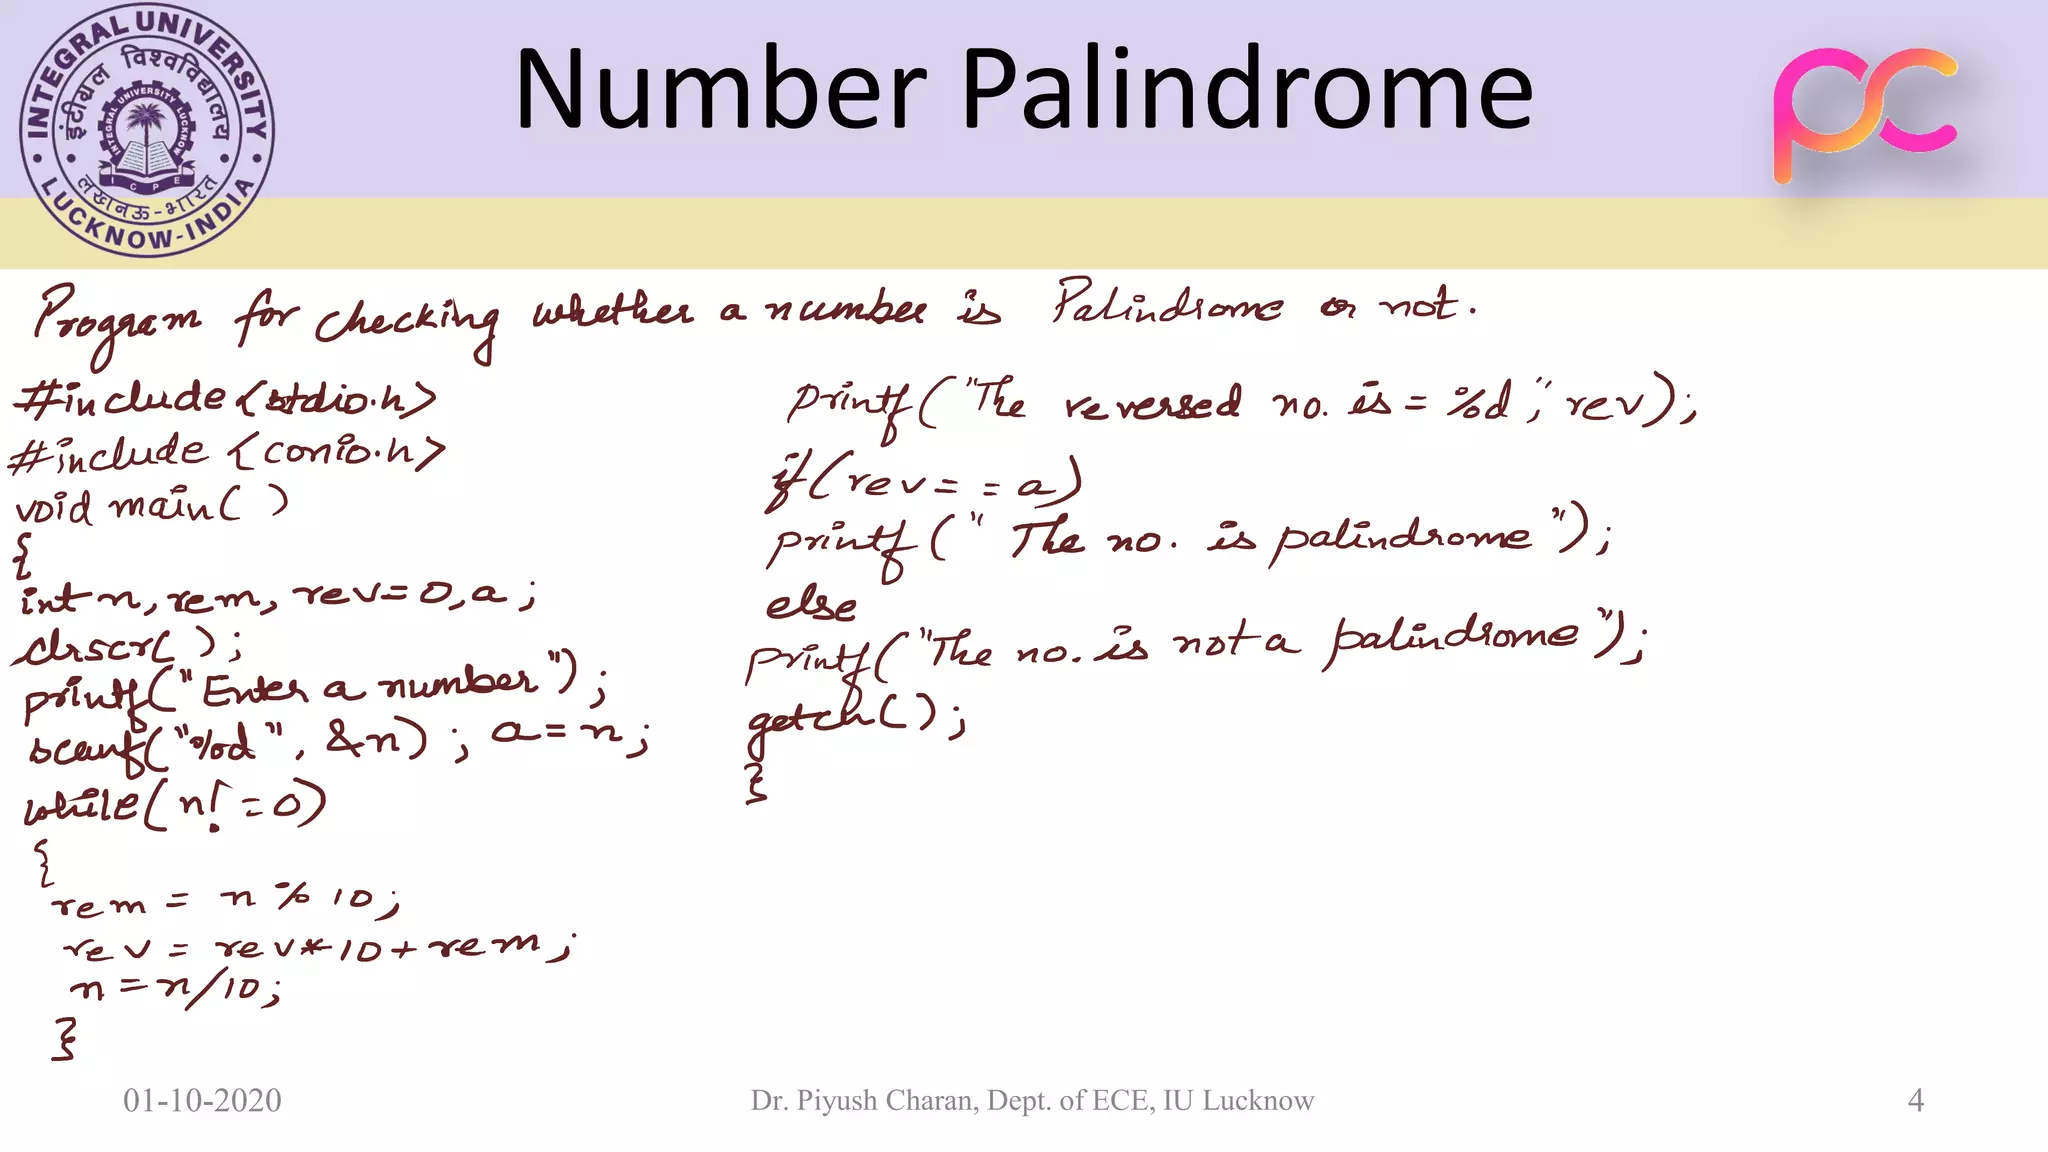 INTEGRAL UNIVERSITY
इंटीग्रल विश्वविद्यालय
INTEGRAL UNIVERSITY LUCKNOW
I C P E
लखनऊ-भारत
LUCKNOW-INDIA
Number Palindrome
pc
Program for checking whether a number is Palindrome or not.
#include<stdio.h>
#include <conio.h>
void main( )
{
int n, rem, rev=0,a;
clrscr( );
printf("Enter a number");
scanf("%d", &n); a=n;
while(n!=0)
{
rem = n % 10;
rev = rev*10+rem;
n=n/10;
}
printf("The reversed no. is = %d", rev);
if(rev==a)
printf(" The no. is palindrome");
else
printf("The no. is not a palindrome");
getch( );
}
01-10-2020
Dr. Piyush Charan, Dept. of ECE, IU Lucknow
4